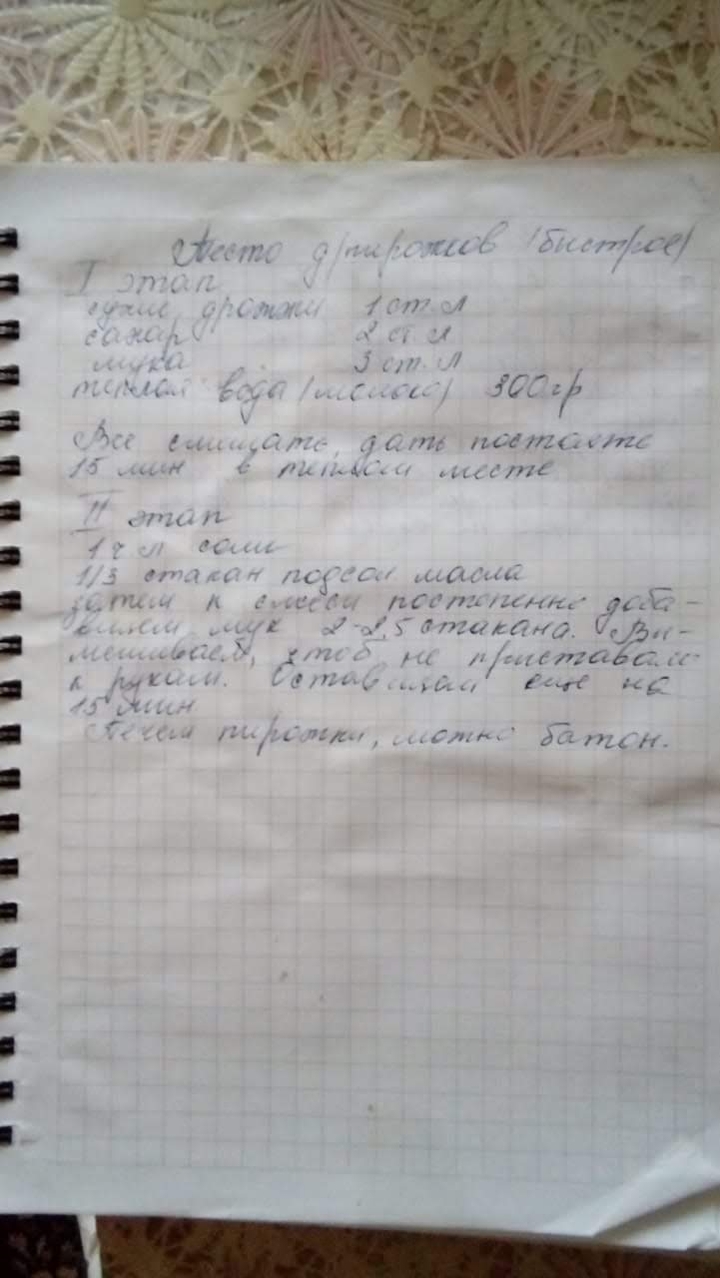 Тесто д/пирожков (быстрое)
I этап
сухие дрожжи 1 ст. л
сахар 2 ст. л
мука 3 ст. л
теплая вода (молоко) 300 гр
Все смешать, дать постоять
15 мин в теплом месте
II этап
1 ч л соли
1/3 стакан подсол масла
затем к смеси постепенно доба-
вляем мук 2-2,5 стакана. Вы-
мешиваем, чтоб не приставали
к рукам. Оставляем еще на
15 мин
Печем пирожки, можно батон.